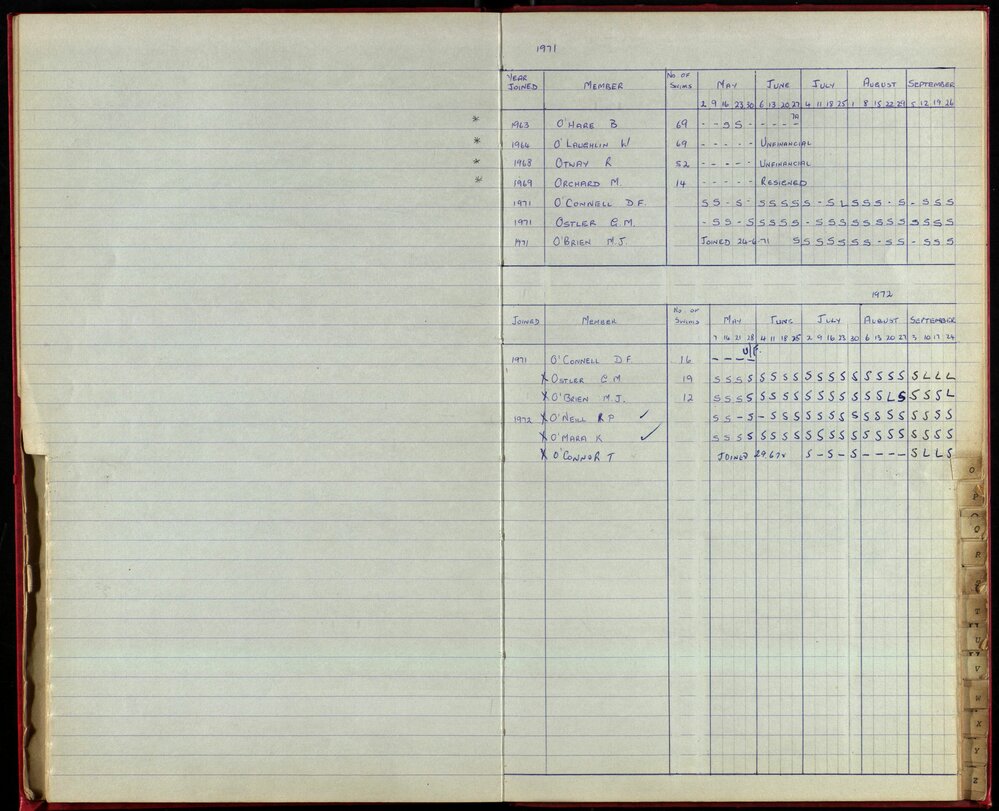 1971
YEAR JOINED MEMBER NO OF SWIMS MAY JUNE JULY AUGUST SEPTEMBER
2 9 16 23 30 6 13 20 27 4 11 18 25 1 8 15 22 29 5 12 19 26
* 1963 O'HARE B 69 - - S S - - - - -
* 1964 O'LAUGHLIN W 69 - - - - - UNFINANCIAL
* 1968 OTWAY R 52 - - - - - UNFINANCIAL
* 1969 ORCHARD M. 14 - - - - - RESIGNED
1971 O'CONNELL D.F. S S - S - S S S S S - S L S S S - S - S S S
1971 OSTLER G.M. - S S - S S S S S - S S S S S S S S S S S S
1971 O'BRIEN M.J. JOINED 24-6-71 S S S S S S S - S S - S S S
1972
JOINED MEMBER No OF SWIMS MAY JUNE JULY AUGUST SEPTEMBER
7 14 21 28 4 11 18 25 2 9 16 23 30 6 13 20 27 3 10 17 24
U/F.
1971 O'CONNELL D.F. 16 - - - -
X OSTLER G M 19 S S S S S S S S S S S S S S S S S S L L L
X O'BRIEN M.J. 12 S S S S S S S S S S S S S S S L S S S S L
1972 X O'NEILL R P ✓ S S - S - S S S S S S S S S S S S S S S S
X O'MARA K ✓ S S S S S S S S S S S S S S S S S S S S S
X O'CONNOR T JOINED 29.6.72 S - S - S - - - - S L L S
O
P
Q
R
S
T
U
V
W
X
Y
Z